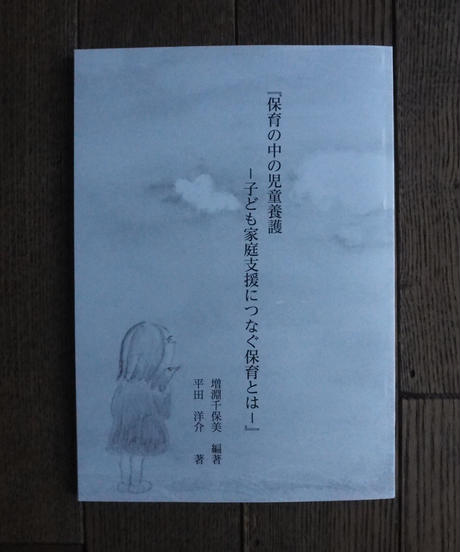 『保育の中の児童養護
－子ども家庭支援につなぐ保育とは－』
増淵千保美 編著
平田 洋介 著